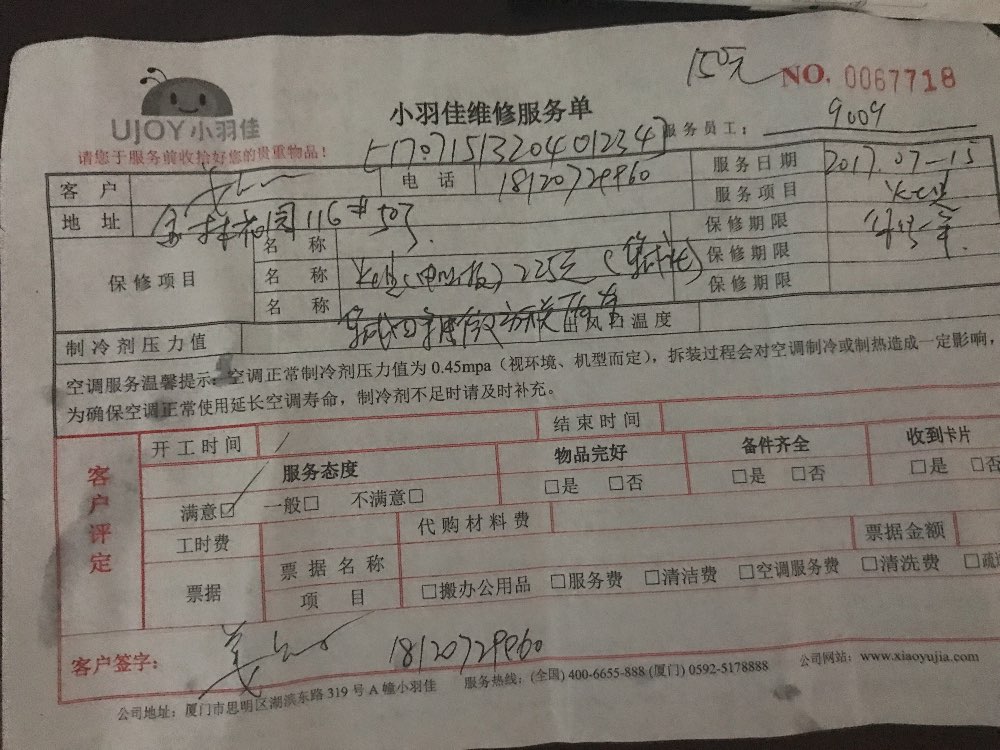 150元 NO. 0067718
UJOY小羽佳
小羽佳维修服务单
服务员工: 9009
请您于服务前收拾好您的贵重物品!
170715132040123​4
客 户 电 话 18120729960 服务日期 2017.07-15
地 址 116# 503 服务项目
保修项目
名 称 保修期限
名 称 225元 保修期限
名 称 保修期限
制冷剂压力值 出风口温度
空调服务温馨提示:空调正常制冷剂压力值为 0.45mpa(视环境、机型而定),拆装过程会对空调制冷或制热造成一定影响,
为确保空调正常使用延长空调寿命,制冷剂不足时请及时补充。
客户评定
开工时间 结束时间
服务态度 物品完好 备件齐全 收到卡片
满意□ 一般□ 不满意□ □是 □否 □是 □否 □是 □否
工时费 代购材料费
票据 票据名称 票据金额
项 目 □搬办公用品 □服务费 □清洁费 □空调服务费 □清洗费
客户签字: 18120729960
公司地址:厦门市思明区湖滨东路 319 号 A 幢小羽佳 服务热线:(全国) 400-6655-888 (厦门) 0592-5178888 公司网站:www.xiaoyujia.com